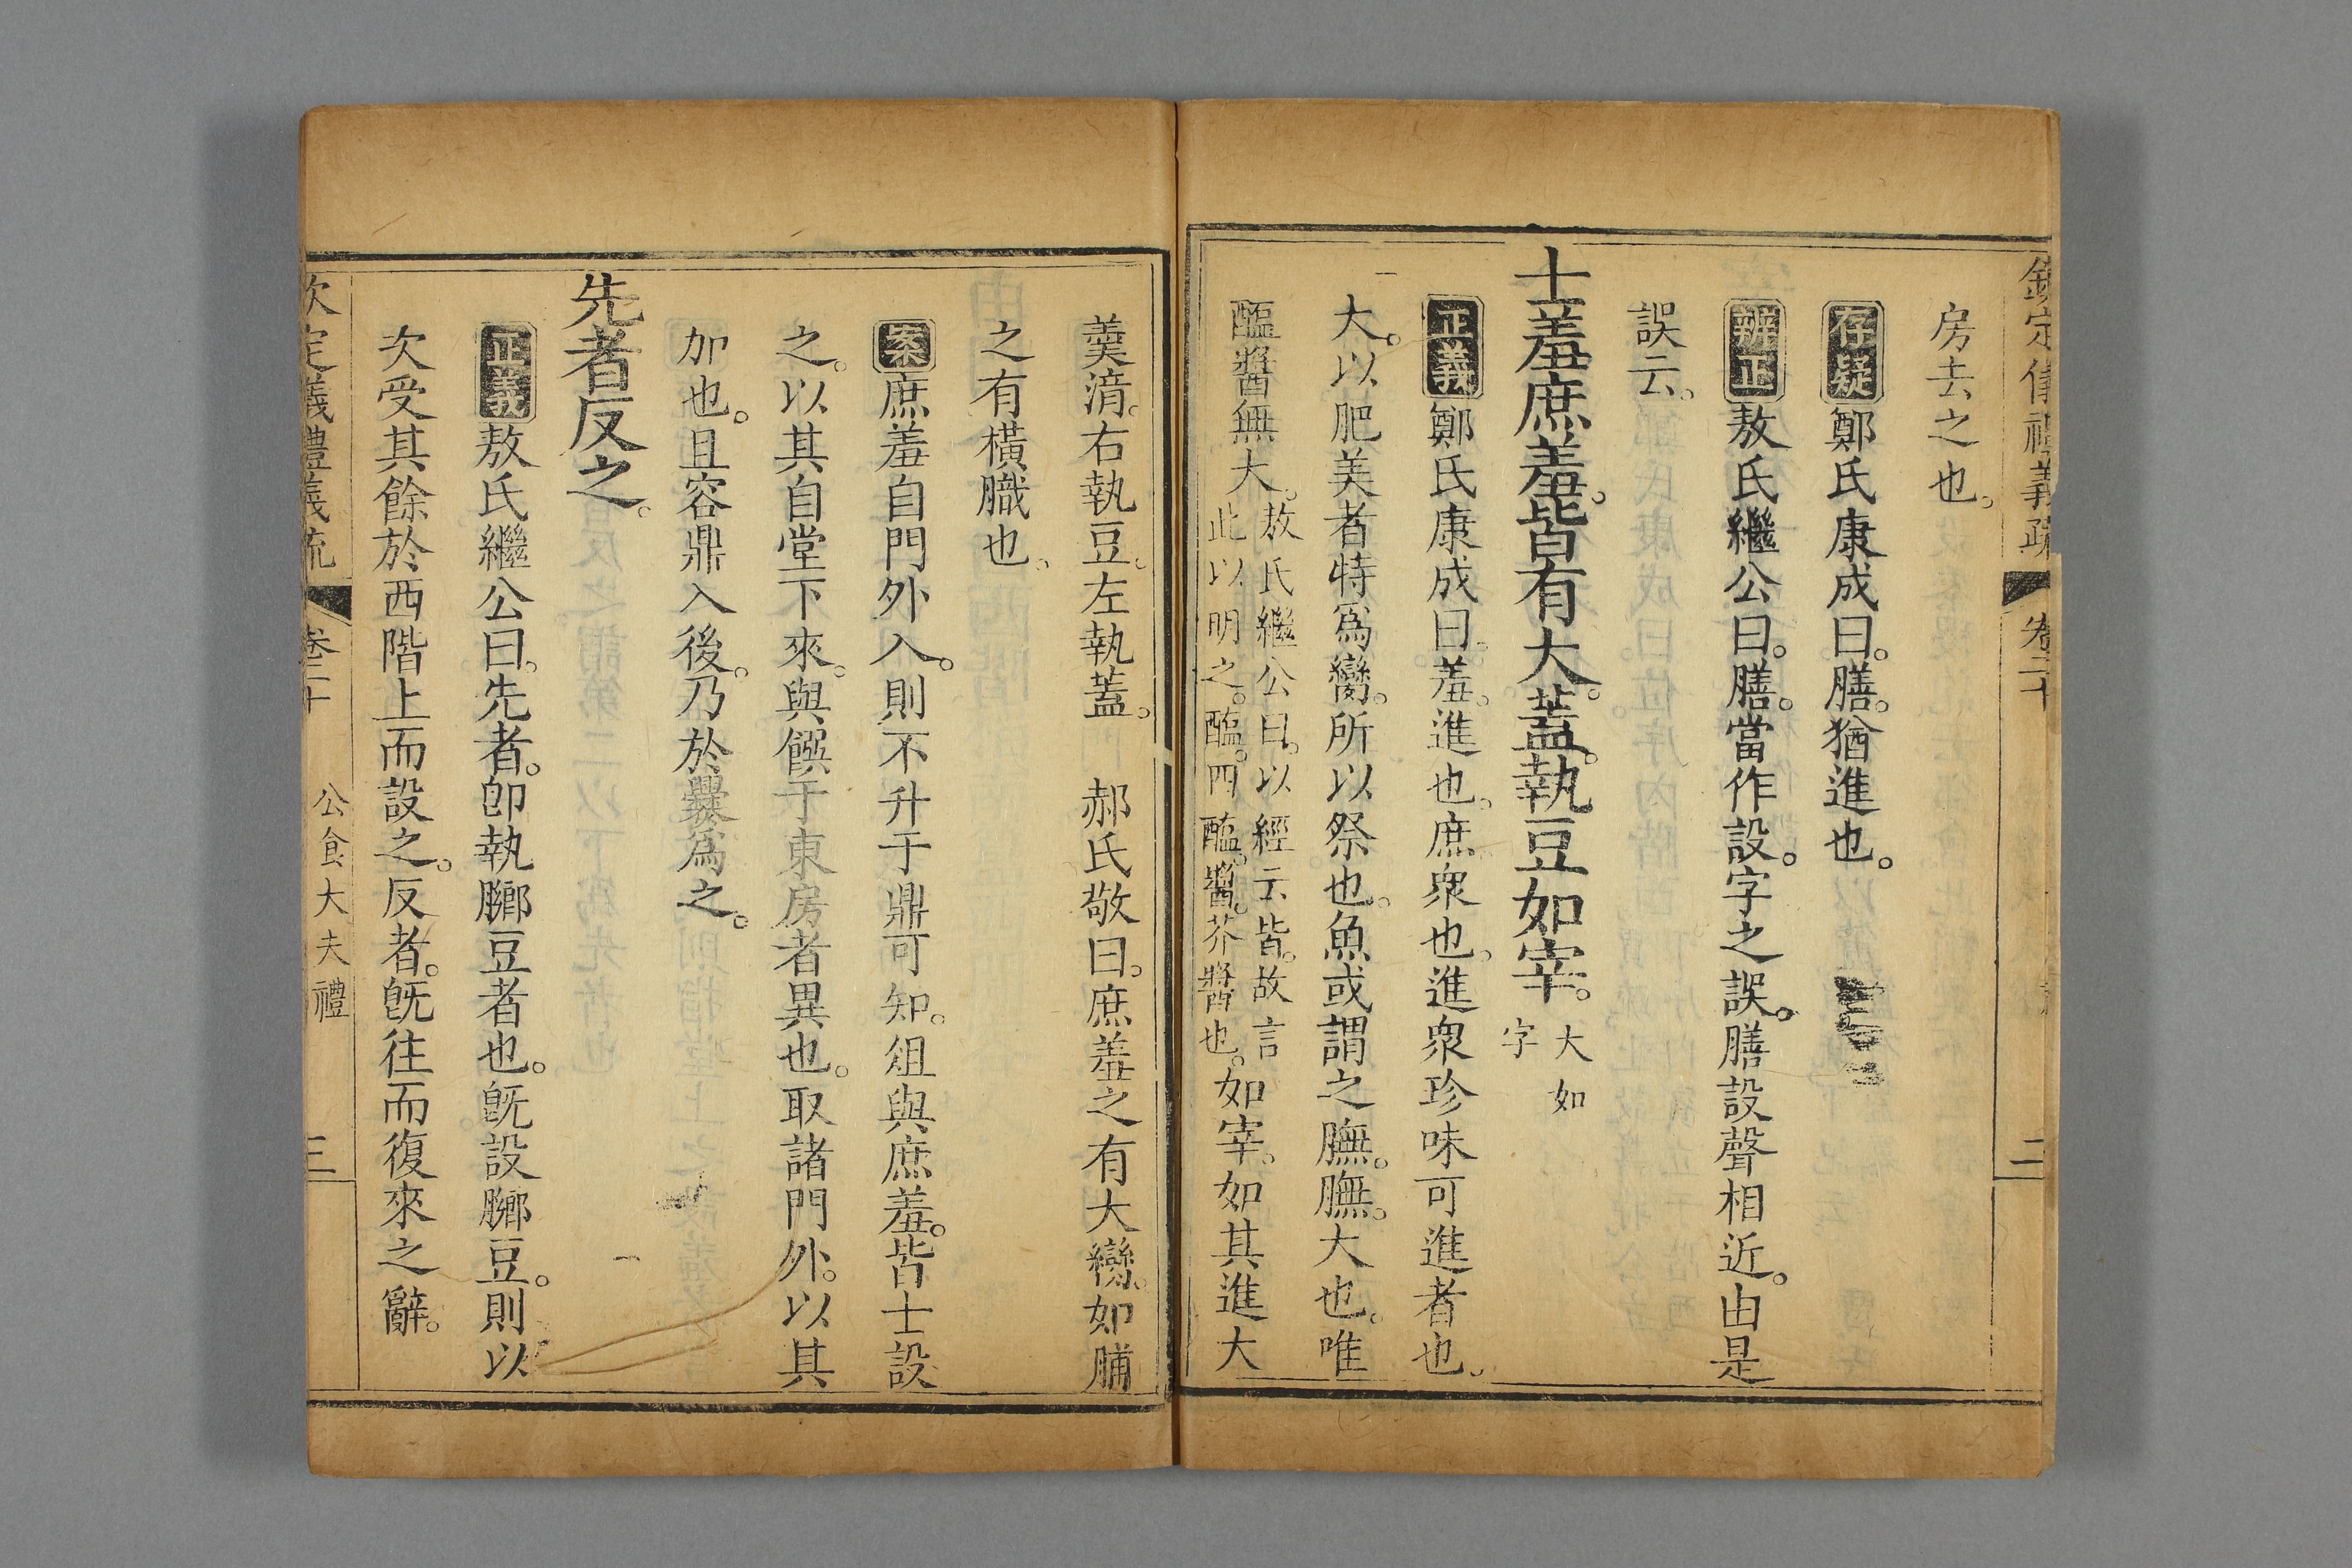 欽定儀禮義疏 卷二十 二
房去之也。
存疑鄭氏康成曰。膳。猶進也。
辨正敖氏繼公曰。膳。當作設。字之誤。膳設聲相近。由是
誤云。
士羞庶羞。皆有大。蓋。執豆如宰。大如字
正義鄭氏康成曰。羞。進也。庶。衆也。進衆珍味可進者也。
大。以肥美者特為臠。所以祭也。魚或謂之膴。膴。大也。唯
醢醬無大。敖氏繼公曰。以經云皆。故言此以明之。醢。四醢。醬。芥醬也。如宰。如其進大
羹湆。右執豆。左執蓋。 郝氏敬曰。庶羞之有大臠。如脯
之有橫膱也。
案庶羞自門外入。則不升于鼎可知。俎與庶羞。皆士設
之。以其自堂下來。與饌于東房者異也。取諸門外。以其
加也。且容鼎入後。乃於爨為之。
先者反之。
正義敖氏繼公曰。先者。卽執膷豆者也。旣設膷豆。則以
次受其餘於西階上而設之。反者。旣往而復來之辭。
欽定儀禮義疏 卷二十 公食大夫禮 三